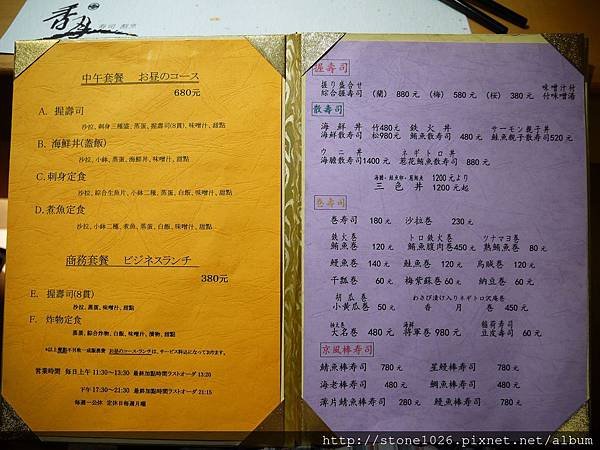 壽司 割烹
中午套餐 お昼のコース
680元
A. 握壽司
沙拉、刺身三種盛、蒸蛋、握壽司(8貫)、味噌汁、甜點
B. 海鮮丼(蓋飯)
沙拉、小鉢、蒸蛋、海鮮丼、味噌汁、甜點
C. 刺身定食
沙拉、綜合生魚片、小鉢二種、蒸蛋、白飯、味噌汁、甜點
D. 煮魚定食
沙拉、小鉢二種、煮魚、蒸蛋、白飯、味噌汁、甜點
商務套餐 ビジネスランチ
380元
E. 握壽司(8貫)
沙拉、蒸蛋、味噌汁、甜點
F. 炸物定食
蒸蛋、綜合炸物、白飯、味噌汁、漬物、甜點
*以上餐點不另收一成服務費 お昼のコース・ランチは、サービス料込になっております。
營業時間 每日上午 11:30~13:30 最終加點時間ラストオーダ 13:20
下午 17:30~21:30 最終加點時間ラストオーダ 21:15
每週一公休 定休日每週月曜
握壽司
握り盛合せ 味噌汁付
綜合握壽司 (蘭) 880元 (梅) 580元 (桜) 380元 付味噌湯
散壽司
海鮮丼 竹480元 鉄火丼 サーモン親子丼
海鮮散壽司 松980元 鮪魚散壽司 480元 鮭魚親子散壽司520元
ウニ丼 ネギトロ丼
海膽散壽司1400元 葱花鮪魚散壽司 880元
1200元より
三色丼 1200元起
卷壽司
卷寿司 180元 沙拉卷 230元
鉄火巻 トロ鉄火巻 ツナマヨ巻
鮪魚卷 120元 鮪魚腹肉卷450元 熟鮪魚卷 80元
鰻魚卷 140元 鮭魚卷 120元 烏賊卷 120元
干瓢卷 60元 梅紫蘇卷 60元 納豆卷 60元
胡瓜巻 わさび漬け入りネギトロ沢庵巻
小黃瓜卷 50元 香月卷 450元
海鮮 稲荷寿司
大名卷 480元 將軍卷 980元 豆皮壽司 60元
京風棒壽司
鯖魚棒壽司 780元 星鰻棒壽司 780元
海老棒壽司 480元 鯛魚棒壽司 480元
薄片鯖魚棒壽司 280元 鰻魚棒壽司 780元
http://stone1026.pixnet.net/album